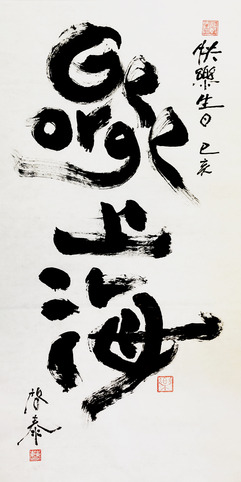 快樂生日 己亥
George
上海
陳泰